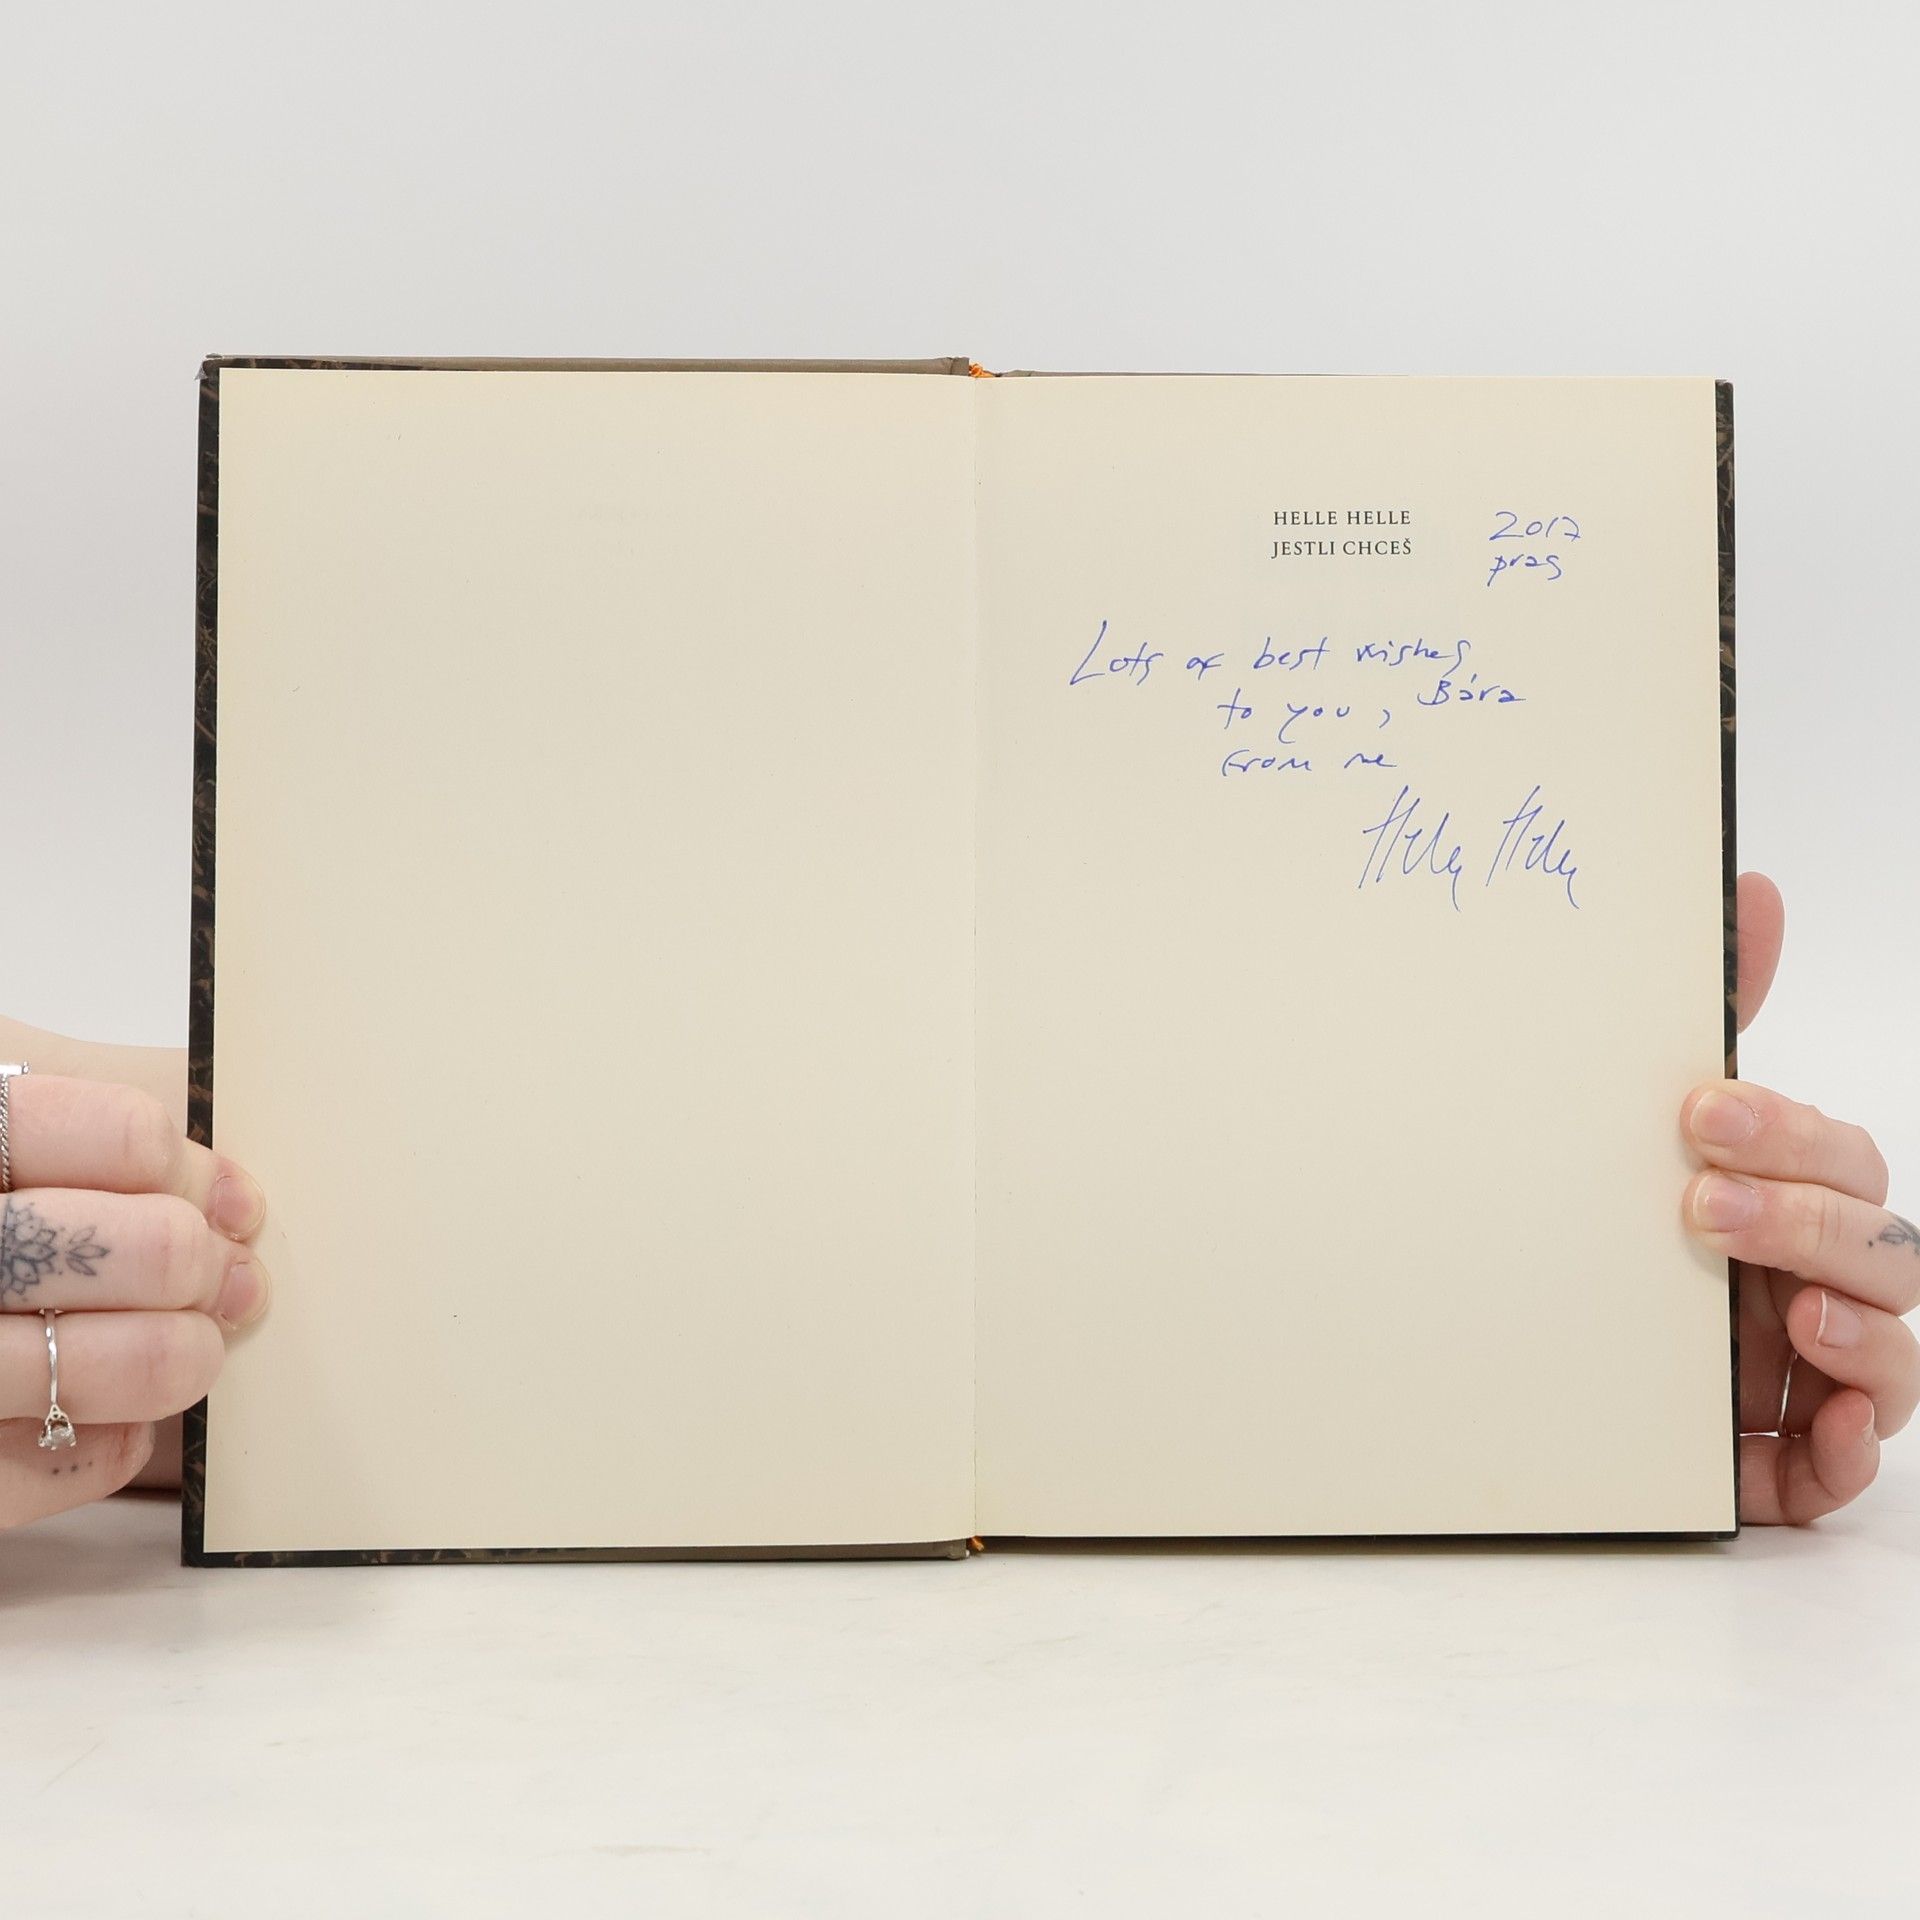 HELLE HELLE
JESTLI CHCEŠ
2017
prag
Lots of best wishes
to you, Bára
from me
Helle Helle